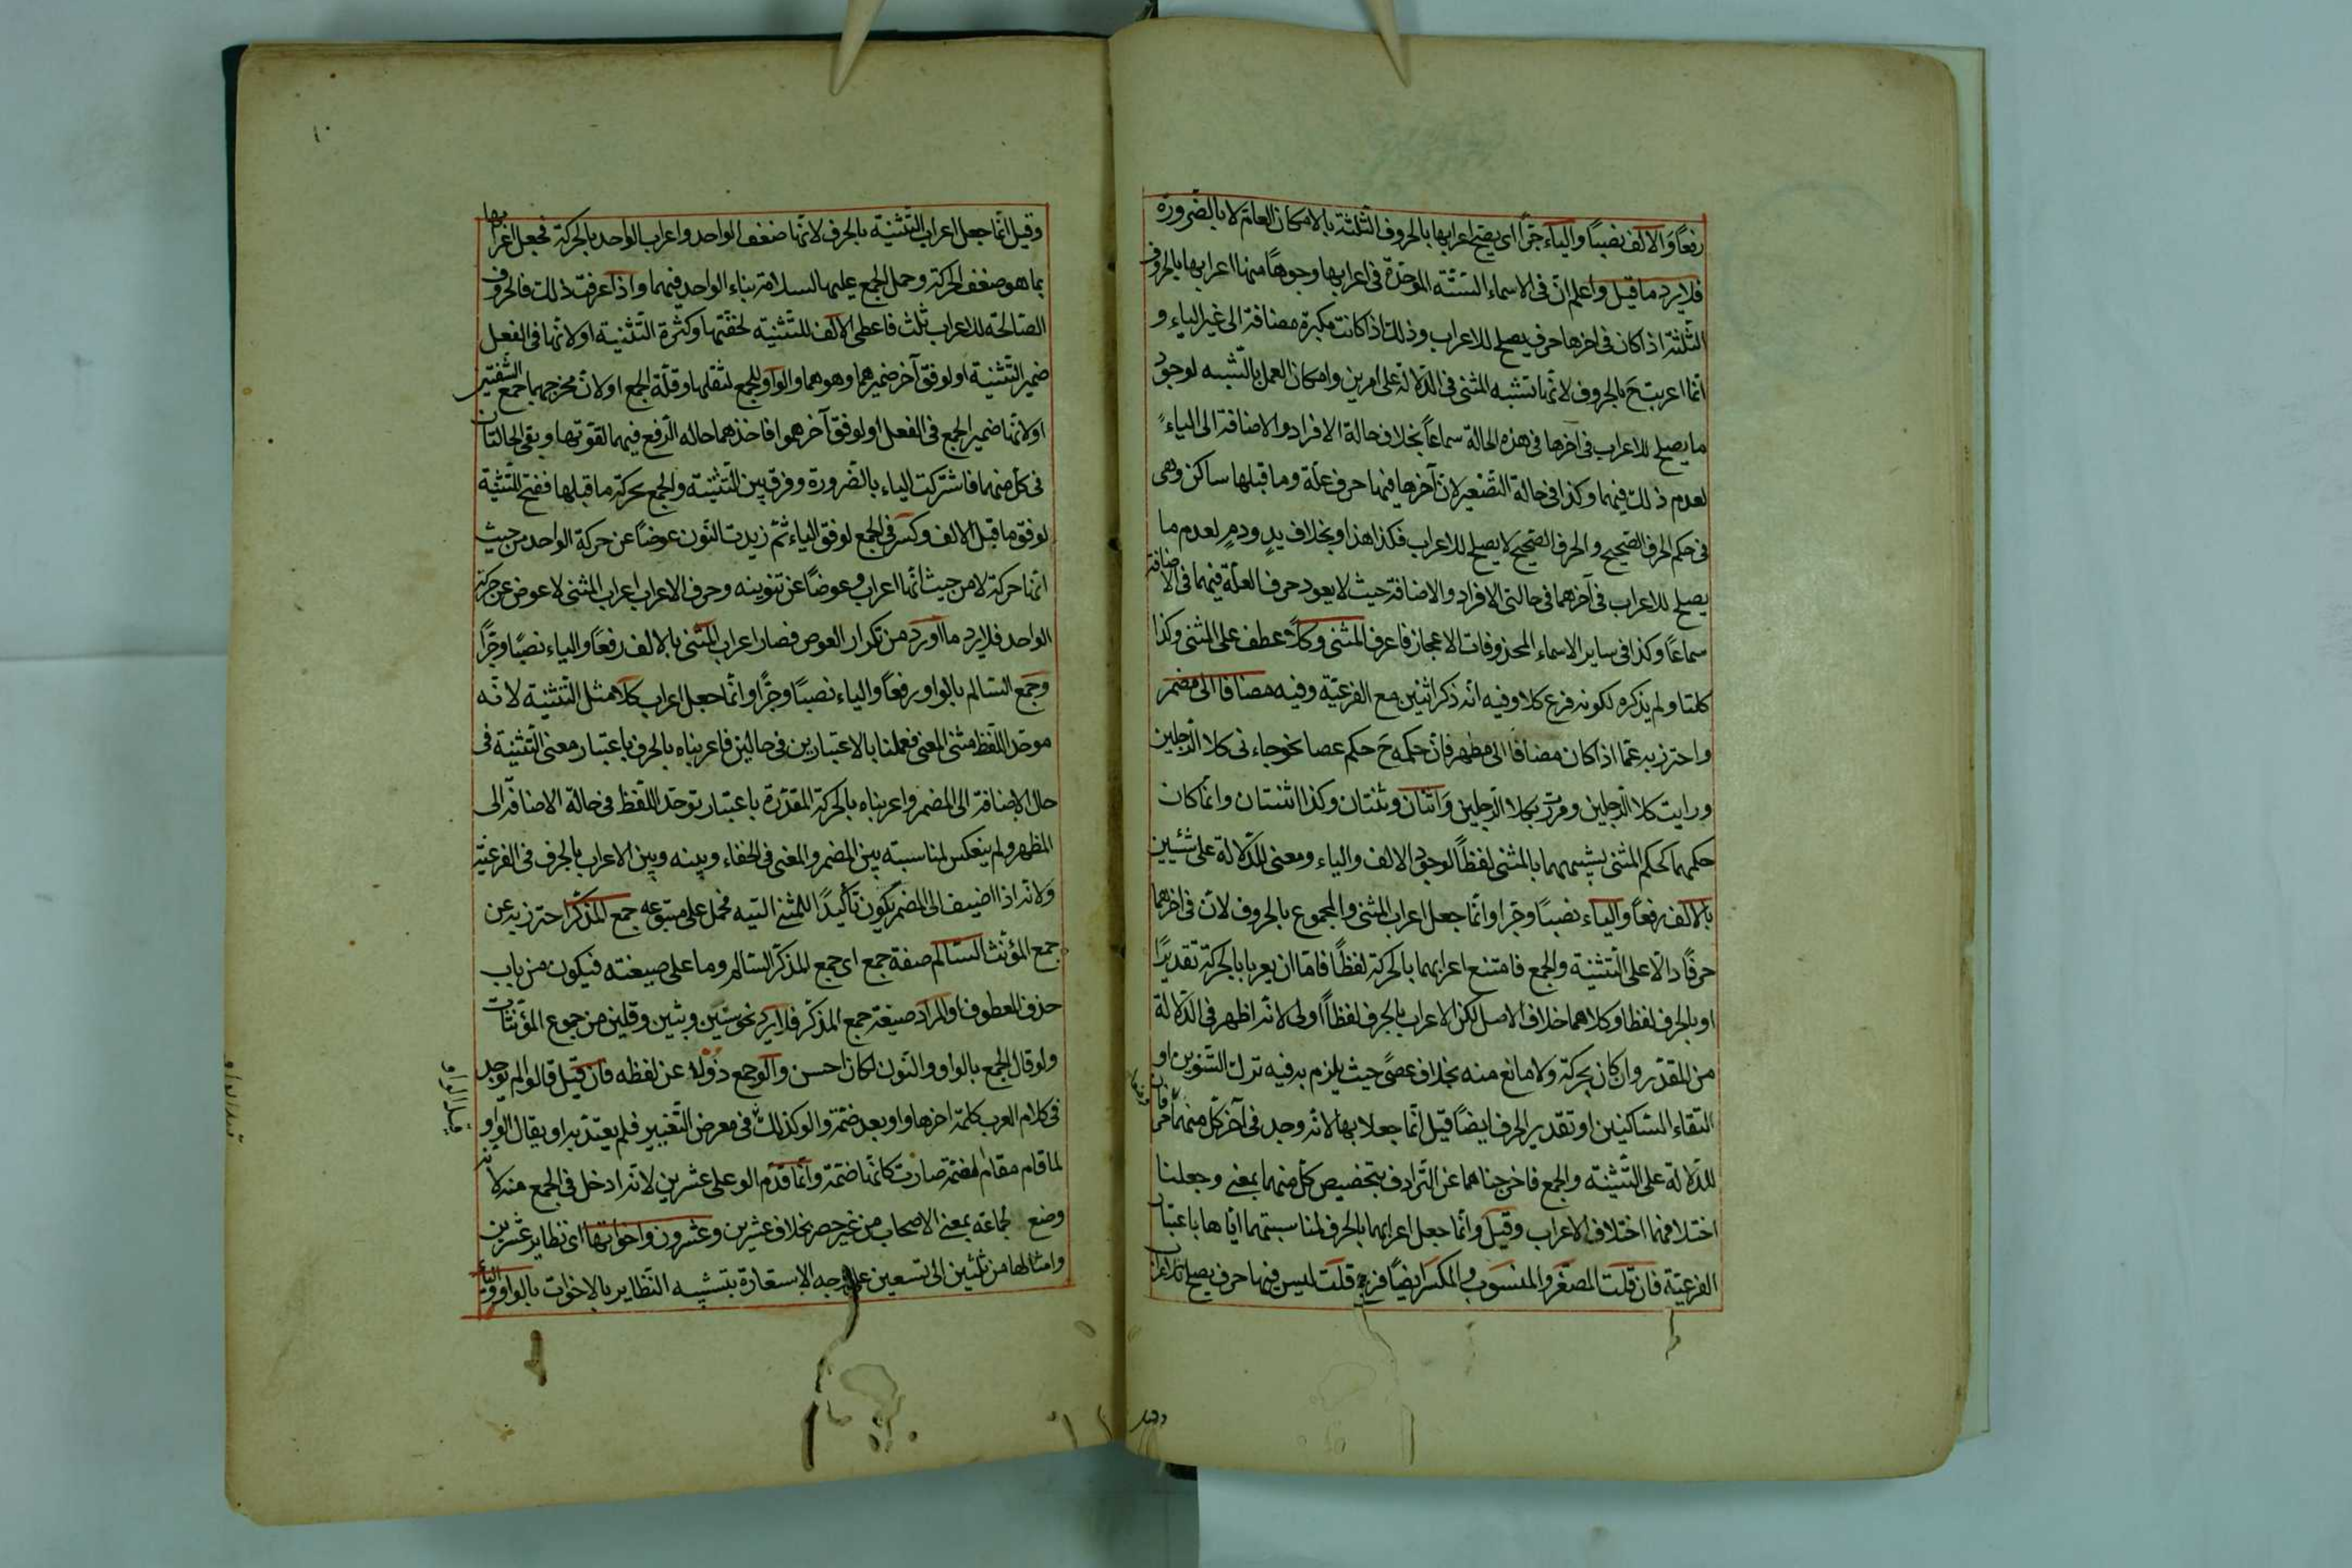 رفعًا والالف نصبًا والياء جرًّا اى يصح اعرابها بالحروف الثلثة بالامكان العام لا بالضرورة
فلا يرد ما قيل واعلم انّ فى الاسماء الستّة الموحّدة فى اعرابها وجوهًا منها اعرابها بالحروف
الثلثة اذا كان فى اخرها حرف يصلح للاعراب وذلك اذا كانت مكبرة مضافة الى غير الياء و
انّما اعربت ح بالحروف لانّها تشبه المثنى فى الدّلالة على امرين وامكان العمل بالشبه لوجود
ما يصلح للاعراب فى آخرها فى هذه الحالة سماعًا بخلاف حالة الافراد والاضافة الى الياء
لعدم ذلك فيهما وكذا فى حالة التّصغير لانّ آخرها فيها حرف علّة وما قبلها ساكن وهى
فى حكم الحرف الصّحيح والحرف الصّحيح لا يصلح للاعراب فكذا هذا وبخلاف يدٍ ودمٍ لعدم ما
يصلح للاعراب فى آخرهما فى حالتى الافراد والاضافة حيث لا يعود حرف العلّة فيهما فى الاضافة
سماعًا وكذا فى ساير الاسماء المحذوفات الاعجاز فاعرف المثنى وكلا عطف على المثنى وكذا
كلتا ولم يذكره لكونه فرع كلا وفيه انّه ذكر اثنين مع الفرعيّة وفيه مضافا الى مضمر
واحترز به عمّا اذا كان مضافًا الى مظهر فانّ حكمه ح حكم عصا نحو جاءنى كلا الرّجلين
ورايت كلا الرّجلين ومررت بكلا الرّجلين واثنان وثنتان وكذا اثنتان وانّما كان
حكمهما كحكم المثنى لشبههما بالمثنى لفظًا لوجود الالف والياء ومعنى للدّلالة على شيئين
بالالف رفعًا والياء نصبًا وجرًا وانّما جعل اعراب المثنى والمجموع بالحروف لانّ فى اخرهما
حرفًا دالّا على التّثنية والجمع فامتنع اعرابهما بالحركة لفظًا فامّا ان يعربا بالحركة تقديرًا
او بالحرف لفظا وكلاهما خلاف الاصل لكن الاعراب بالحرف لفظًا اولى لانّه اظهر فى الدّلالة
من المقدّر وان كان بحركة ولا مانع منه بخلاف عصًى حيث يلزم به فيه ترك التّنوين او
التقاء السّاكنين او تقدير الحرف ايضًا قيل انّما جعلا بها لانّه وجد فى آخر كلّ منهما حرفان
للدّلالة على التّثنية والجمع فاخرجناهما عن التّرادف بتخصيص كلّ منهما بمعنى وجعلنا
اختلافهما اختلاف الاعراب وقيل وانّما جعل اعرابهما بالحرف لمناسبتهما ايّاها باعتبار
الفرعيّة فان قلت المصغّر والمنسوب والمكسّر ايضًا فرع قلت ليس فيها حرف يصلح للاعراب
وقيل
١٠
وقيل انّما جعل اعراب التّثنية بالحرف لانّها ضعف الواحد واعراب الواحد بالحركة فجعل اعرابها
بما هو ضعف الحركة وحمل الجمع عليها لسلامة بناء الواحد فيهما واذا عرفت ذلك فالحروف
الصّالحة للاعراب ثلث فاعطى الالف للتّثنية لخفّتها وكثرة التّثنية او لانّها فى الفعل
ضمير التّثنية او لوفق آخر ضميرهما وهو هما والواو للجمع لثقلها وقلّة الجمع او لانّ مخرجهما جمع الشّفتين
او لانّها ضمير الجمع فى الفعل او لوفق آخر همو فاخذهما حاله الرّفع فيهما لقوّتها وبقى الحالتان
فى كلّ منهما فاشتركت الياء بالضّرورة وفرق بين التّثنية والجمع بحركة ما قبلها ففتح للتّثنية
لوفق ما قبل الالف وكسر فى الجمع لوفق الياء ثمّ زيدت النّون عوضًا عن حركة الواحد من حيث
انّها حركة لا من حيث انّها اعراب وعوضًا عن تنوينه وحرف الاعراب اعراب المثنى لا عوض عن حركة
الواحد فلا يرد ما اورد من تكرار العوض فصار اعراب المثنى بالالف رفعًا والياء نصبًا وجرًّا
وجمع السّالم بالواو رفعًا والياء نصبًا وجرًّا وانّما جعل اعراب كلا مثل التّثنية لانّه
موحّد اللّفظ مثنّى المعنى فعملنا بالاعتبارين فى حالين فاعربناه بالحرف باعتبار معنى التّثنية فى
حال الاضافة الى المضمر واعربناه بالحركة المقدّرة باعتبار توحّد اللّفظ فى حالة الاضافة الى
المظهر ولم ينعكس لمناسبته بين المضمر والمعنى فى الخفاء وبينه وبين الاعراب بالحرف فى الفرعيّة
ولانّه اذا اضيف الى المضمر يكون تأكيدًا للمثنى البتّه فحمل على متبوعه جمع المذكّر احترز به عن
جمع المؤنّث السّالم صفة جمع اى جمع المذكّر السّالم وما على صيغته فيكون من باب
حذف المعطوف او المراد صيغة جمع المذكّر فلا يرد نحو سنين وثبين وقلين من جموع المؤنّثات
ولو قال الجمع بالواو والنّون لكان احسن والو جمع ذو لا عن لفظه فان قيل قالوا لم يوجد
فى كلام العرب كلمة اخرها واو بعد ضمّة والو كذلك فى معرض التّغيير فلم يعتدّ به او يقال الواو
لما قام مقام الضمّة صارت كانّها ضمّة وانّما قدّم الو على عشرين لانّه ادخل فى الجمع منه لانّه
وضع لجماعة بمعنى الاصحاب من غير حصر بخلاف عشرين وعشرون واخواتها اى نظاير عشرين
وامثالها من ثلثين الى تسعين على وجه الاستعارة بتشبيه النّظاير بالاخوات بالواو والياء
قبل الواو